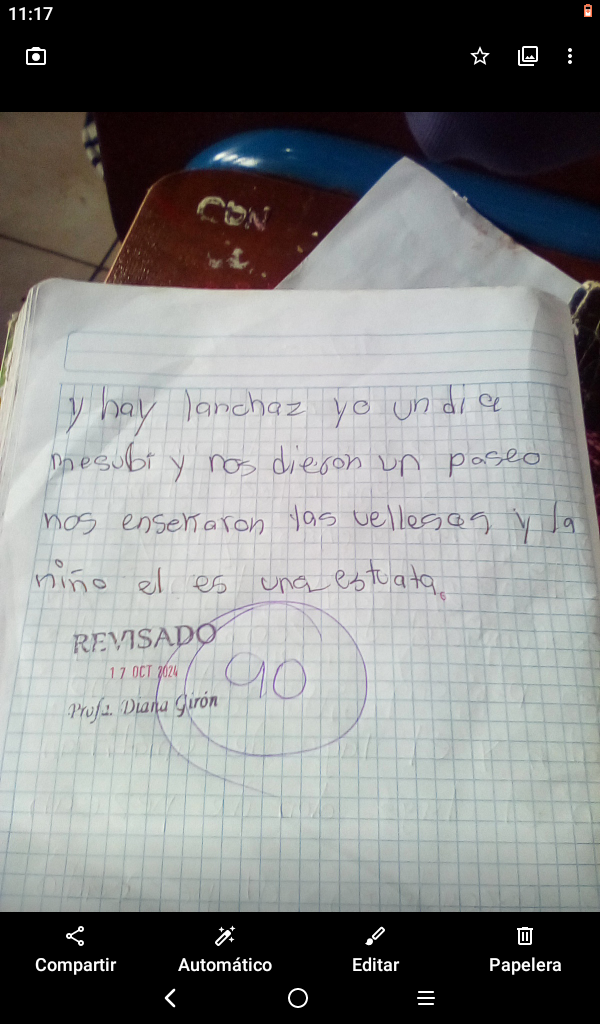 11:17
CDN
y hay lanchaz yo un dia
mesubi y nos dieron un paseo
nos enseñaron las vellesas y la
niño el es una estuata.
REVISADO
17 OCT 2024
Profa. Diana Girón
90
Compartir
Automático
Editar
Papelera